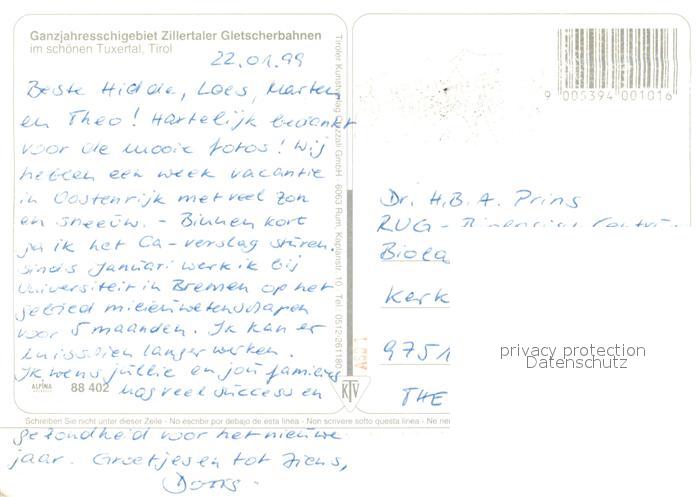 Ganzjahresschigebiet Zillertaler Gletscherbahnen
im schönen Tuxertal, Tirol
22.01.99
Beste Hidde, Loes, Marten
en Theo! Hartelijk bedankt
voor de mooie fotos! Wij
hebben een week vacantie
in Oostenrijk met veel zon
en sneeuw. - Binnen kort
ga ik het Ca-verslag stüren.
Sinds Januari werk ik bij
Universiteit in Bremen op het
gebied milieuwetenschapen
voor 5 maanden. Ik kan er
misschien langer werken.
Ik wens jullie en jou familie
nog veel success en
gezondheid voor het nieuwe
jaar. Groetjes en tot ziens,
ALPINA
88 402
Tiroler Kunstverlag Chizzali GmbH 6063 Rum, Kaplanstr. 10 Tel. 0512-261180
KTV
Schreiben Sie nicht unter dieser Zeile - No escribir por debajo de esta linea - Non scrivere sotto questa linea - Ne
9 005394 001016
Dr. H.B.A. Prins
RUG -
Biolo
Kerk
9751
THE
privacy protection
Datenschutz